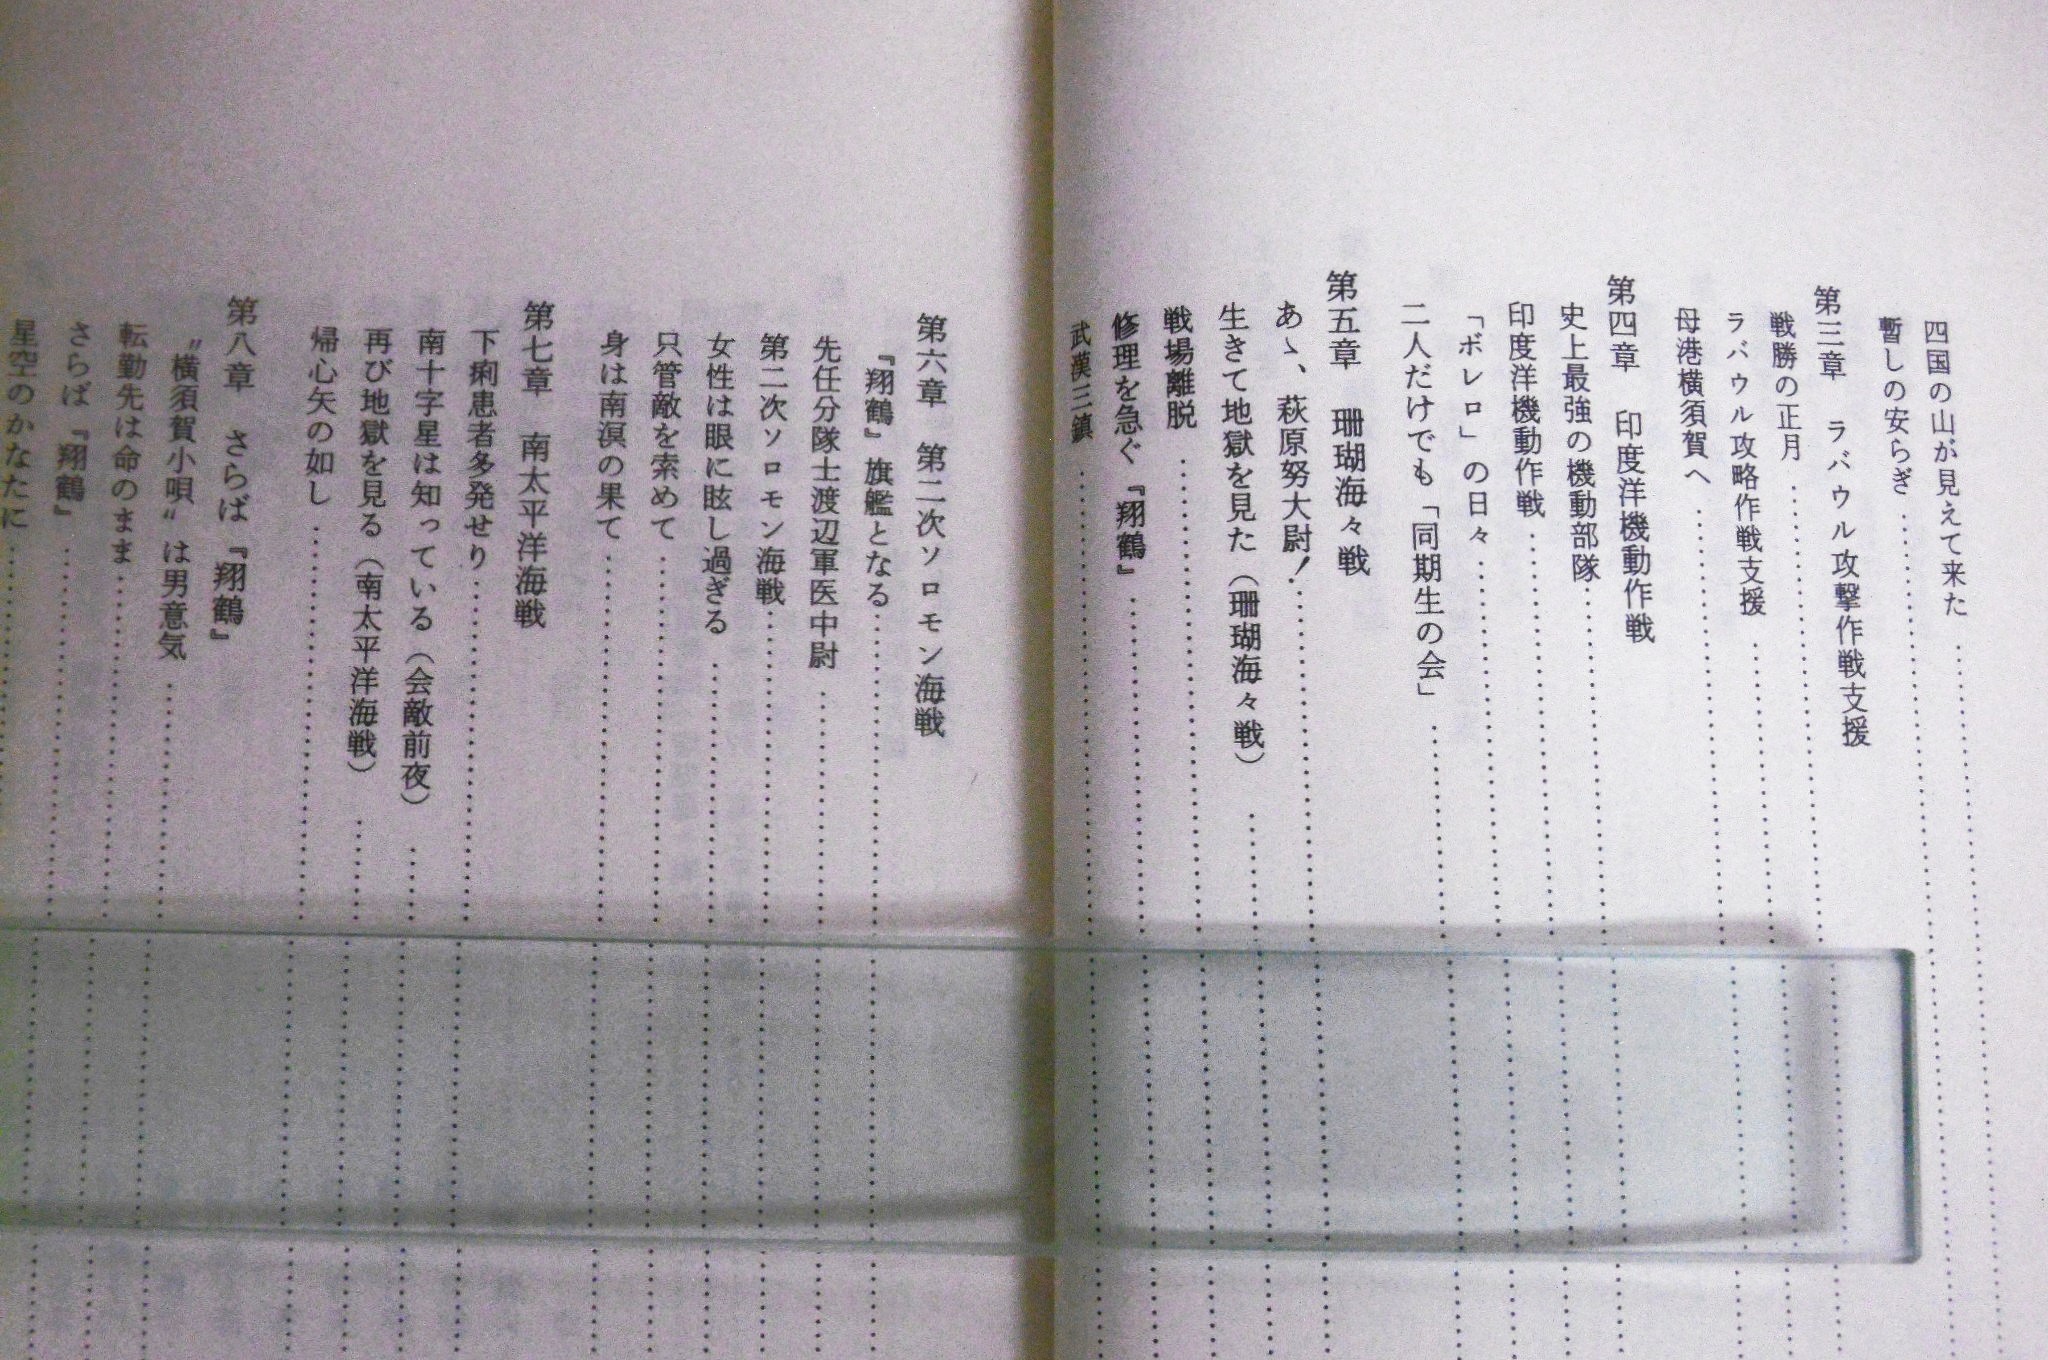 四国の山が見えて来た
暫しの安らぎ
第三章　ラバウル攻撃作戦支援
戦勝の正月
ラバウル攻略作戦支援
母港横須賀へ
第四章　印度洋機動作戦
史上最強の機動部隊
印度洋機動作戦
「ボレロ」の日々
二人だけでも「同期生の会」
第五章　珊瑚海々戦
あゝ、萩原努大尉！
生きて地獄を見た（珊瑚海々戦）
戦場離脱
修理を急ぐ『翔鶴』
武漢三鎮
第六章　第二次ソロモン海戦
『翔鶴』旗艦となる
先任分隊士渡辺軍医中尉
第二次ソロモン海戦
女性は眼に眩し過ぎる
只管敵を索めて
身は南溟の果て
第七章　南太平洋海戦
下痢患者多発せり
南十字星は知っている（会敵前夜）
再び地獄を見る（南太平洋海戦）
帰心矢の如し
第八章　さらば『翔鶴』
〝横須賀小唄〟は男意気
転勤先は命のまま
さらば『翔鶴』
星空のかなたに